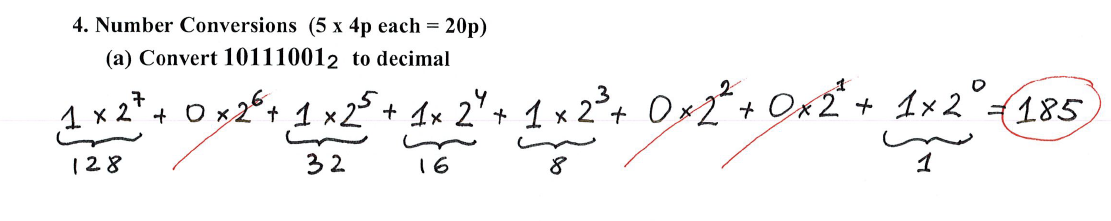 4. Number Conversions (5 x 4p each = 20p)
(a) Convert 10111001₂ to decimal
1 x 2⁷ + 0 x 2⁶ + 1 x 2⁵ + 1 x 2⁴ + 1 x 2³ + 0 x 2² + 0 x 2¹ + 1 x 2⁰ = 185
128 32 16 8 1